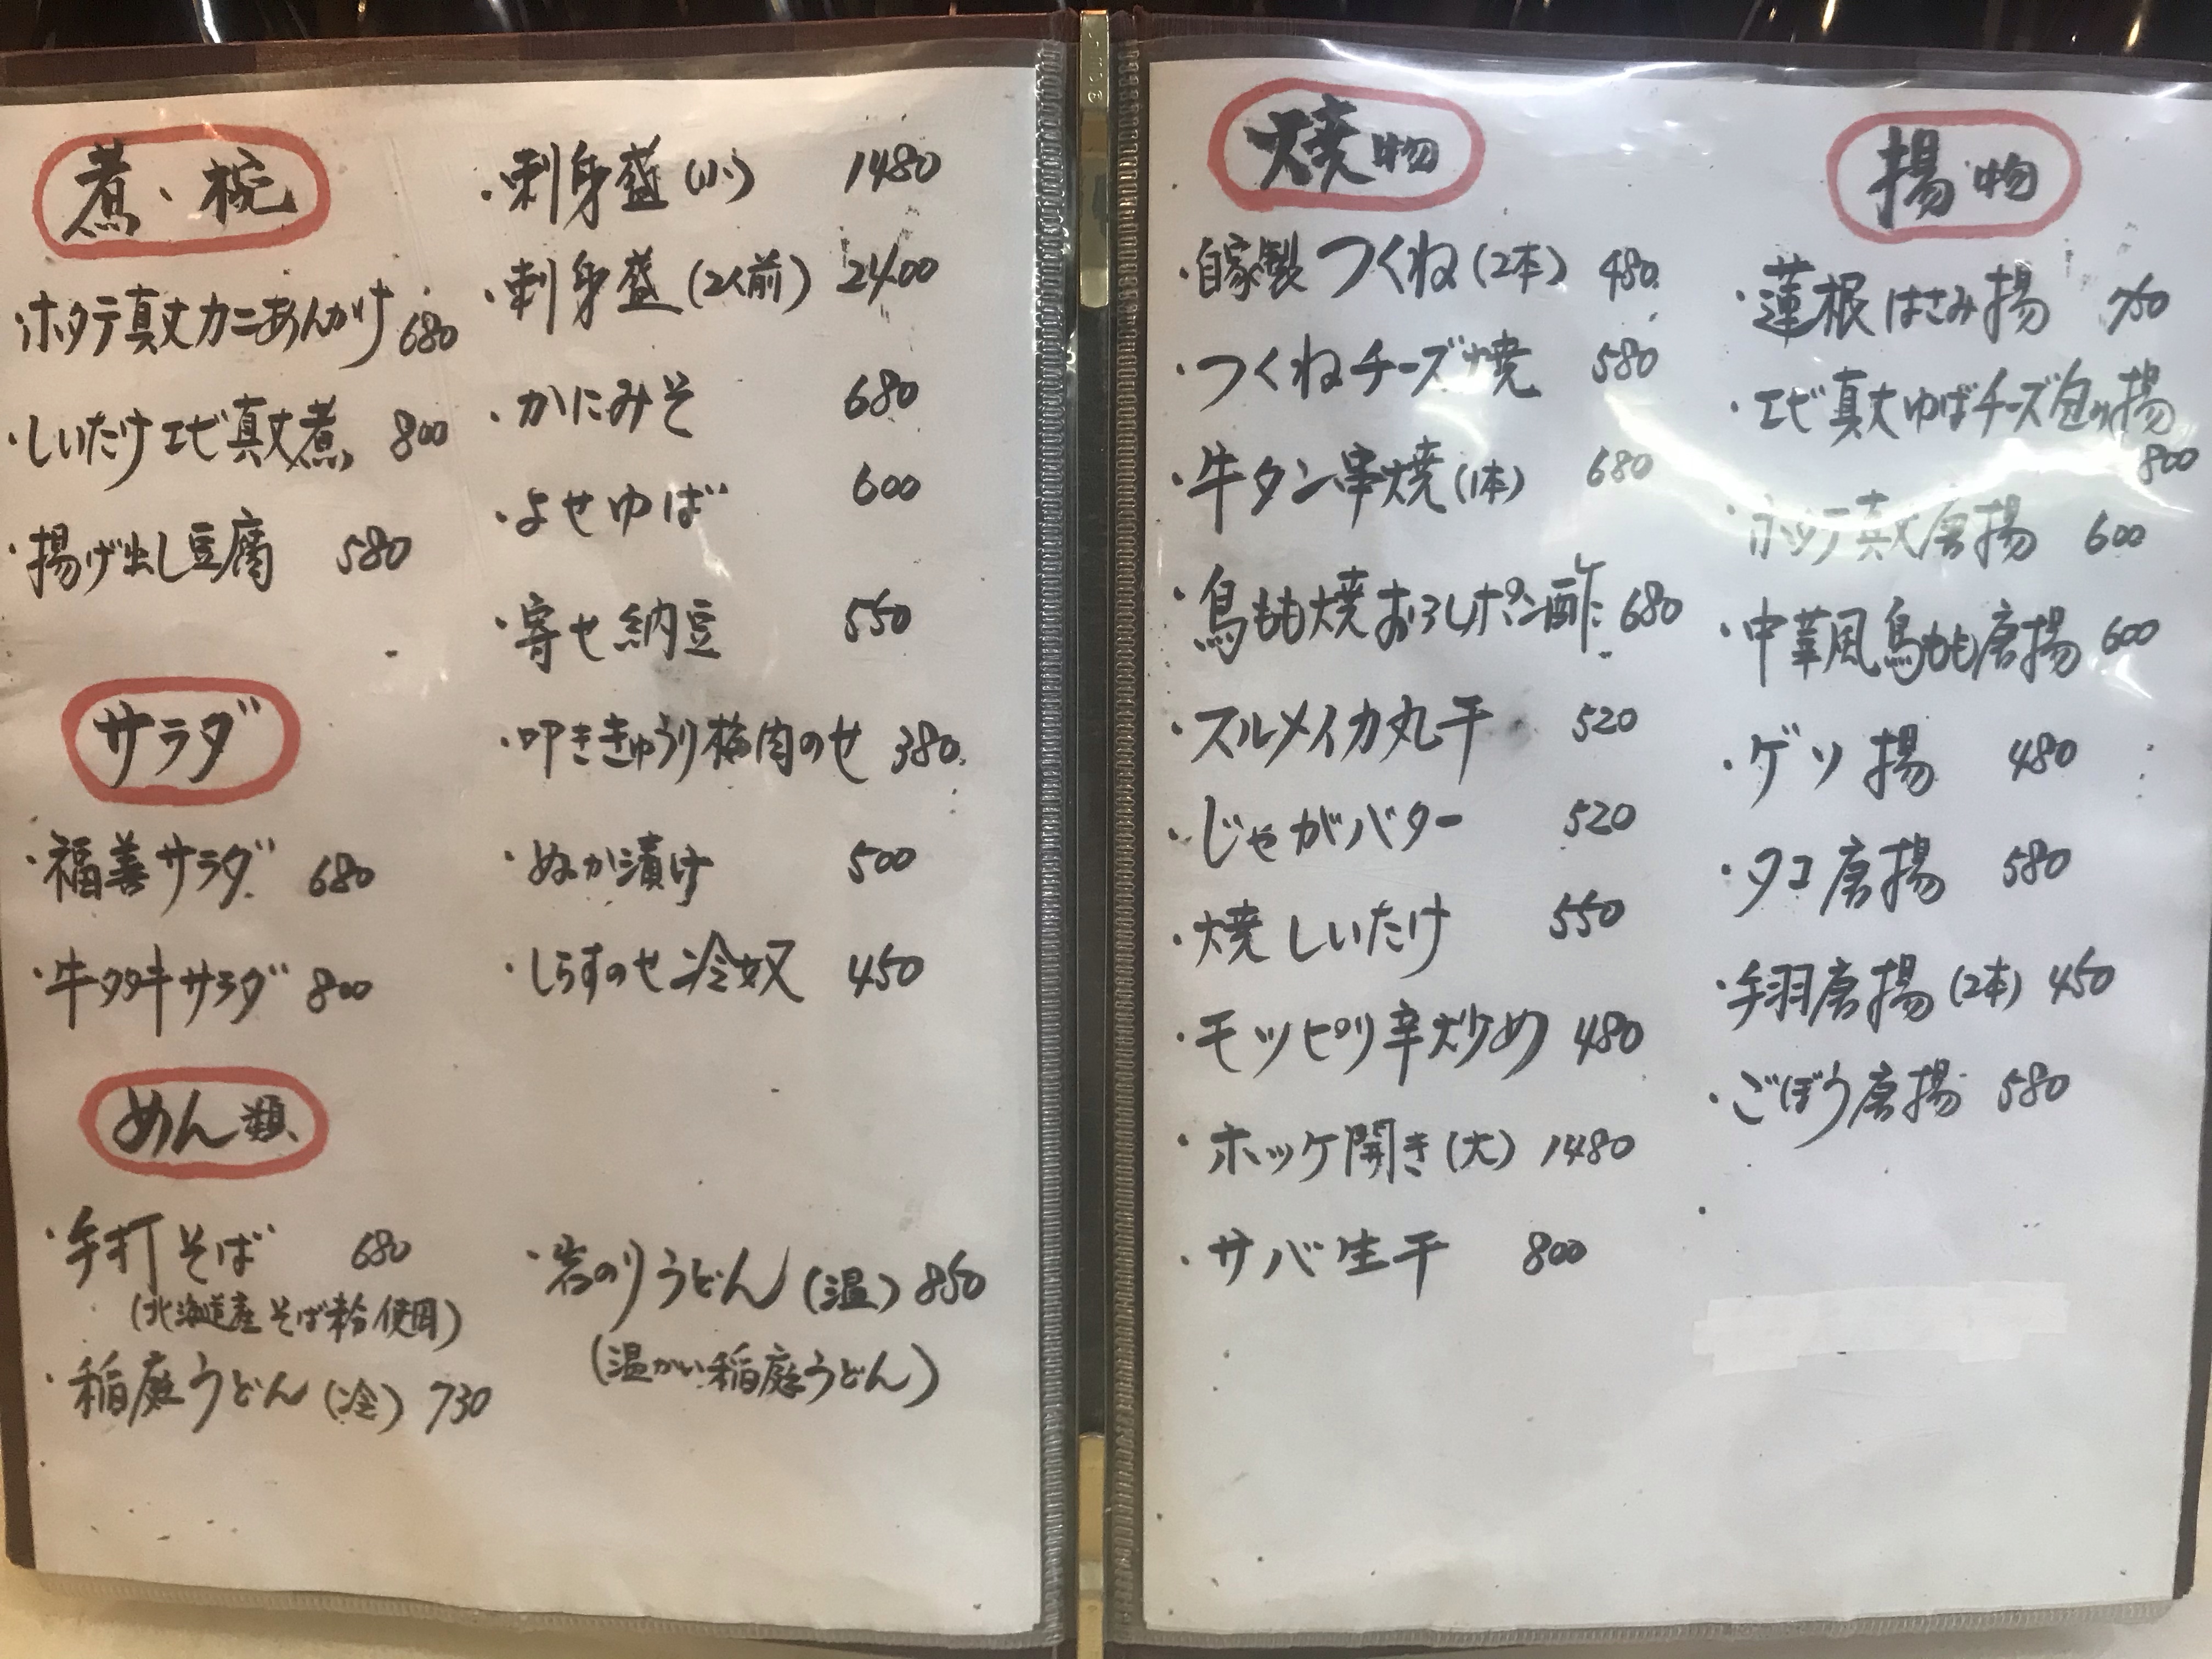 煮・椀
・ホタテ真丈カニあんかけ 680
・しいたけエビ真丈煮 800
・揚げ出し豆腐 580
サラダ
・福善サラダ 680
・牛タタキサラダ 800
めん類
・手打そば 680
(北海道産そば粉使用)
・稲庭うどん(冷) 730
・刺身盛(小) 1480
・刺身盛(2人前) 2400
・かにみそ 680
・よせゆば 600
・寄せ納豆 550
・叩ききゅうり梅肉のせ 380.
・ぬか漬け 500
・しらすのせ冷奴 450
・岩のりうどん(温) 850
(温かい稲庭うどん)
焼物
・自家製つくね(2本) 480.
・つくねチーズ焼 580
・牛タン串焼(1本) 680
・鳥もも焼おろしポン酢 680
・スルメイカ丸干 520
・じゃがバター 520
・焼しいたけ 550
・モツピリ辛炒め 480
・ホッケ開き(大) 1480
・サバ生干 800
揚物
・蓮根はさみ揚 750
・エビ真丈ゆばチーズ包み揚
800
・ホタテ真丈唐揚 600
・中華風鳥もも唐揚 600
・ゲソ揚 480
・タコ唐揚 580
・手羽唐揚(2本) 450
・ごぼう唐揚 580